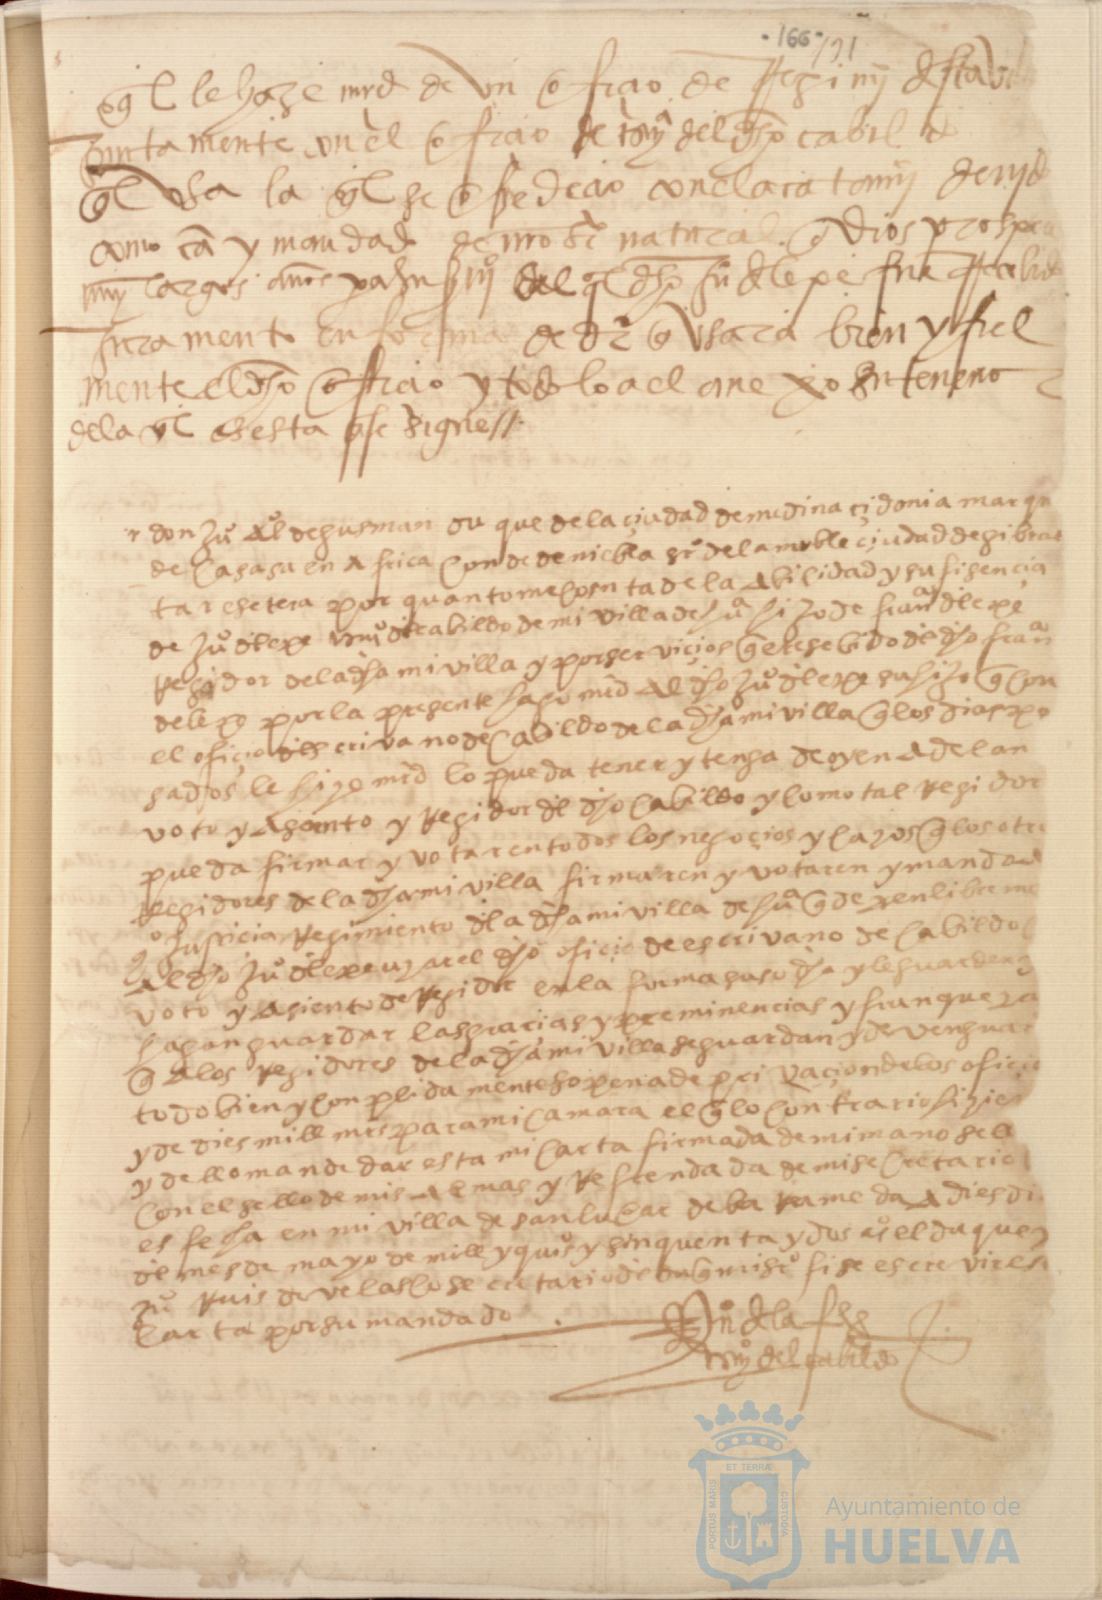 ·166· 171
ql le haze mrd de un oficio de regimyº desta villa
juntamente con el oficio de escrivº del dho cabildo
ql usa la ql se obedecio con el acatamyº devido
como carta y mandado de nro sr natural q dios prospere
muy largos años
juramento en forma de dro q usara bien y fiel
mente el dho oficio y todo lo a el anexo en tenor
de la ql es esta q se sigue //
don juº Al de gusman duque de la çiudad de medina çidonia marques
de Casasa en Africa Conde de niebla sr de la noble çiudad de gibral
tar esetera por quanto me Consta de la Abilidad y sufisençia
de juº de lepe de cabildo de mi villa de guelva hijo de franco de lepe
Regidor de la dha mi villa y por serviçios q e resebido del dho franco
de lepe por la presente hago mrd Al dho juº de lepe su hijo q Con
el ofiçio de escrivano de Cabildo de la dha mi villa q los dias pa
sados le hize mrd lo pueda tener y tenga de oy en Adelan
voto y Asiento y Regidor del dho Cabildo y Como tal Regidor
pueda firmar y votar en todos los negoçios y Casos q los otros
Regidores de la dha mi villa firmaren y votaren y mando
Justicia Regimiento de la dha mi villa de guelva q dexen libremente
Al dho juº de lepe usar el dho ofiçio de escrivano de Cabildo
voto y Asiento de Regidor en la forma suso dha y le guarden
hagan guardar las graçias y preminencias y franquezas
q A los Regidores de la dha mi villa se guardan y deven guardar
todo bien y Conplidamente so pena de privaçion de los ofiçios
y de dies mill mrs para mi Camara el q lo Contrario hiziere
y dello mande dar esta mi Carta firmada de mi mano sella
Con el sello de mis Armas y Refrendada de mi seCretario
es fecha en mi villa de sanluCar de barrameda A dies di
del mes de mayo de mill y quiºs y sinquenta y dos aºs el duque
juº Ruis de velasCo secretario del duq mi sr fise escrevir esta
Carta por su mandado
escrivº del cabildo
PORTUS MARIS ET TERRÆ CUSTODIA
Ayuntamiento de
HUELVA